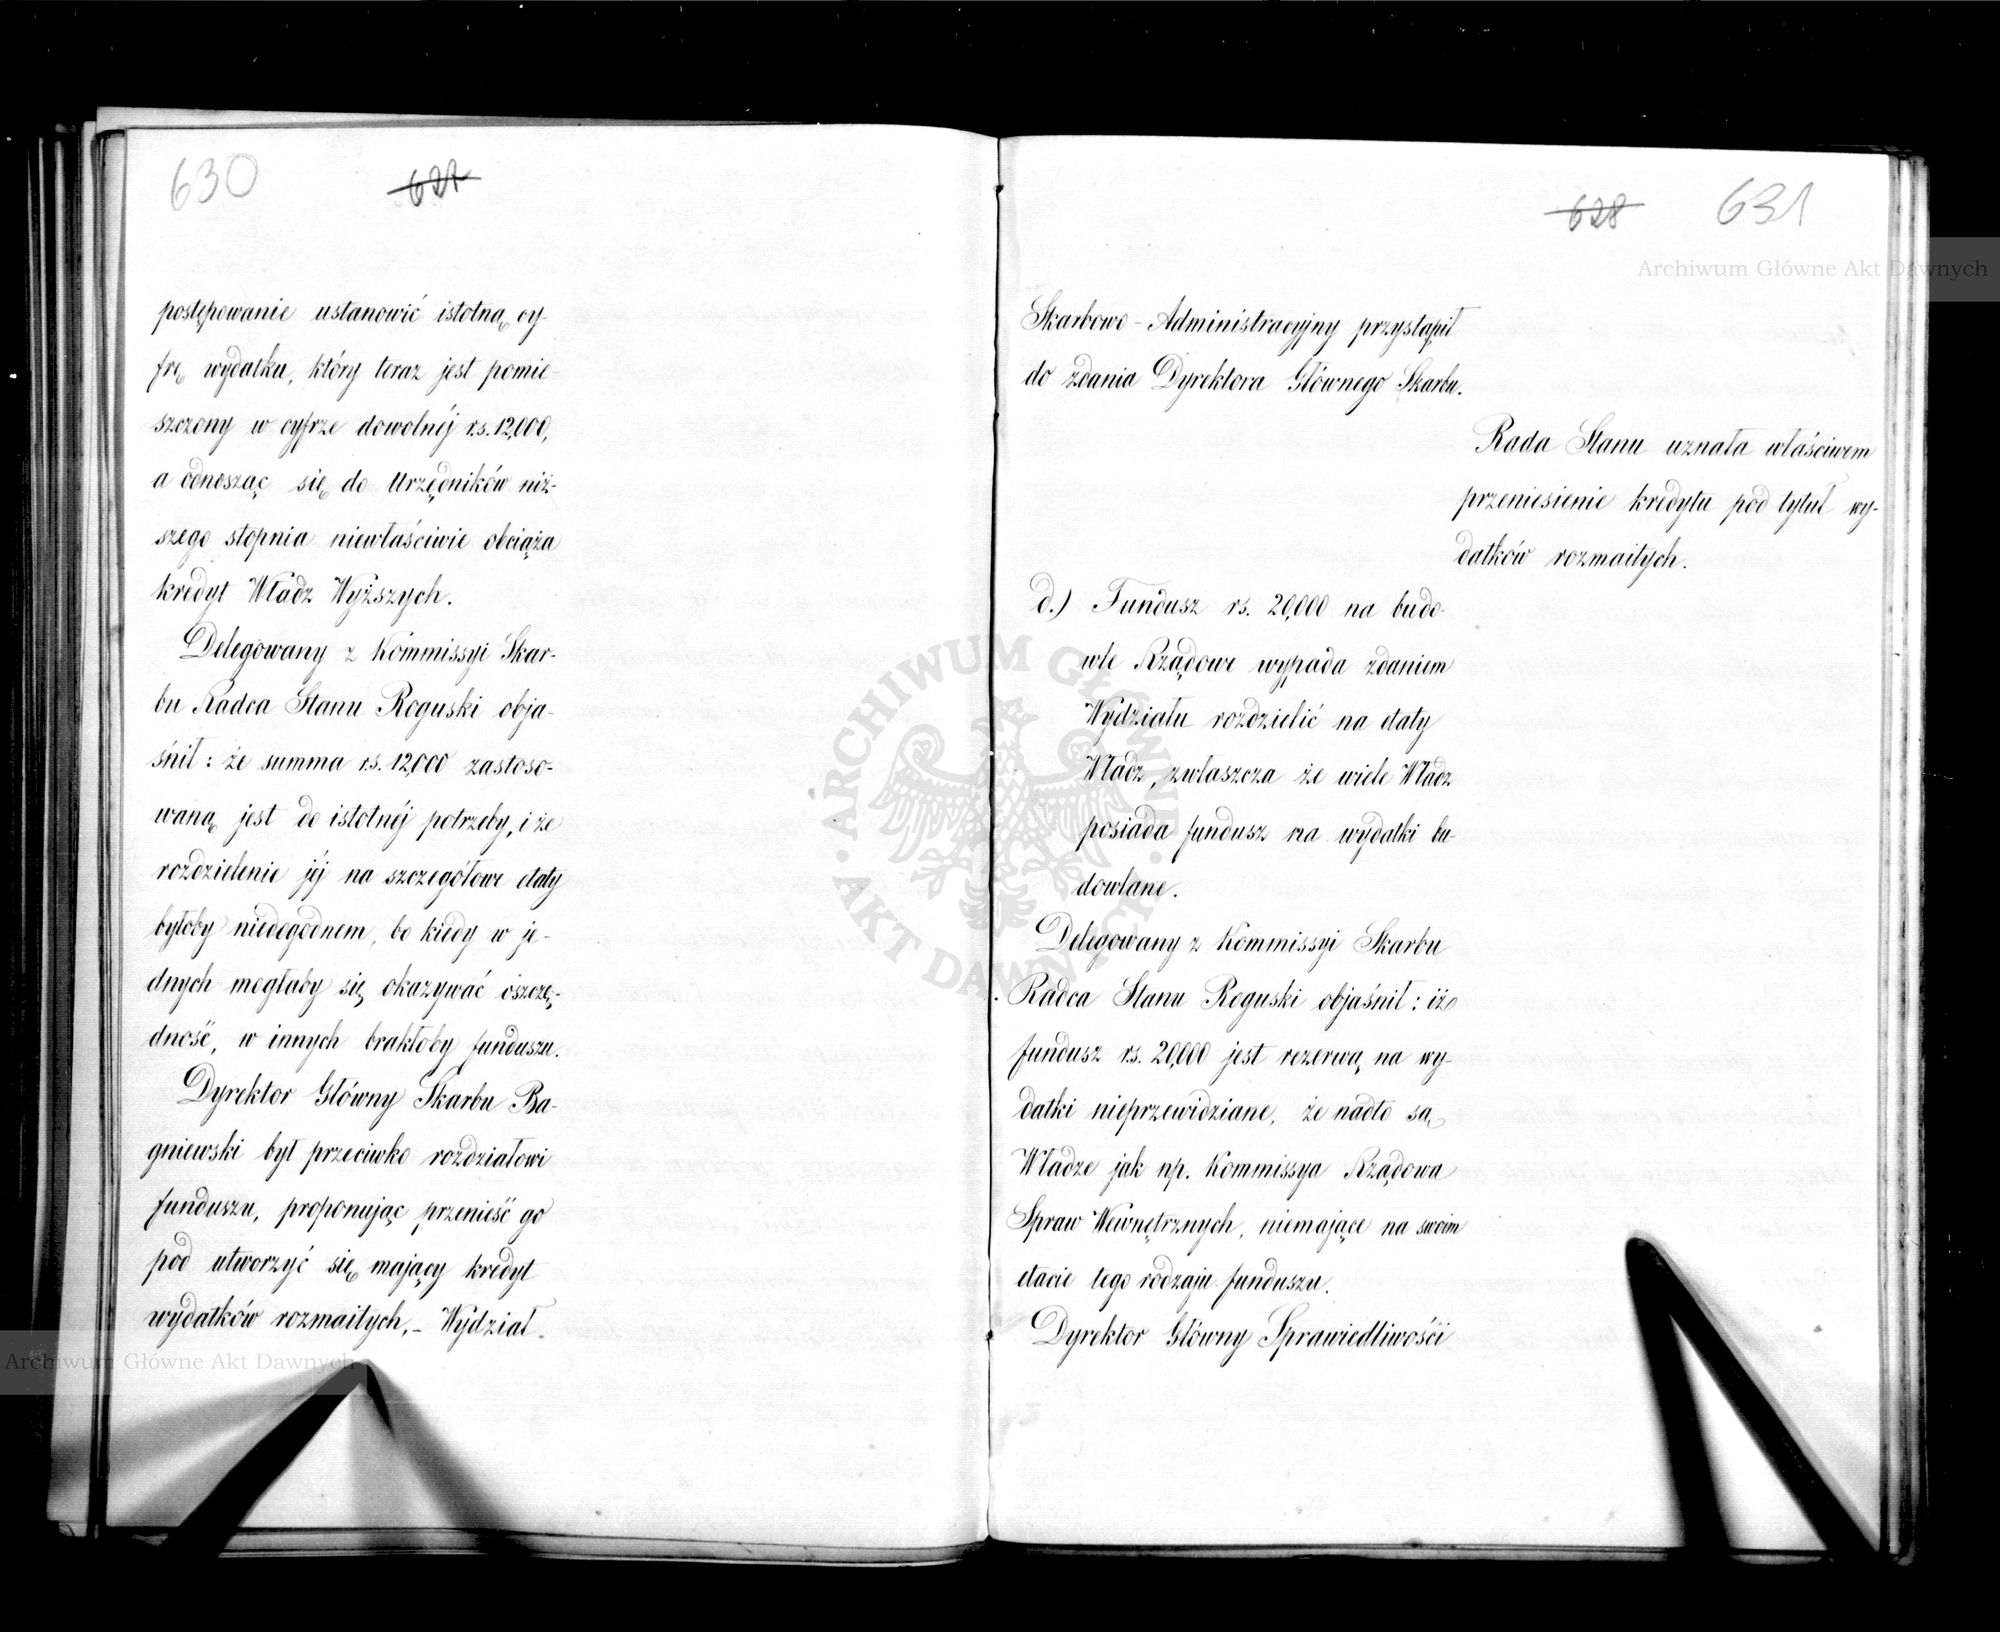 630
627
postępowanie ustanowić istotną cy-
frę wydatku, który teraz jest pomie-
szczony w cyfrze dowolnéj rs. 12,000,
a odnosząc się do Urzędników niż-
szego stopnia niewłaściwie obciąża
kredyt Władz Wyższych.
Delegowany z Kommissyi Skar-
bu Radca Stanu Roguski obja-
śnił: że summa rs. 12,000 zastoso-
waną jest do istotnéj potrzeby, i że
rozdzielenie jéj na szczegółowe etaty
byłoby niedogodnem, bo kiedy w je-
dnych mogłaby się okazywać oszczę-
dność, w innych brakłoby funduszu.
Dyrektor Główny Skarbu Ba-
gniewski był przeciwko rozdziałowi
funduszu, proponując przenieść go
pod utworzyć się mający kredyt
wydatków rozmaitych,- Wydział
628
631
Skarbowo-Administracyjny przystąpił
do zdania Dyrektora Głównego Skarbu.
Rada Stanu uznała właściwem
przeniesienie kredytu pod tytuł wy-
datków rozmaitych.
d.) Fundusz rs. 20,000 na budo-
wle Rządowe wypada zdaniem
Wydziału rozdzielić na etaty
Władz, zwłaszcza że wiele Władz
posiada fundusz na wydatki bu
dowlane.
Delegowany z Kommissyi Skarbu
Radca Stanu Roguski objaśnił: iż
fundusz rs. 20,000 jest rezerwą na wy-
datki nieprzewidziane, że nadto są
Władze jak np. Kommissya Rządowa
Spraw Wewnętrznych, niemające na swoim
etacie tego rodzaju funduszu.
Dyrektor Główny Sprawiedliwości
Archiwum Główne Akt Dawnych
Archiwum Główne Akt Dawnych
ARCHIWUM GŁÓWNE
AKT DAWNYCH